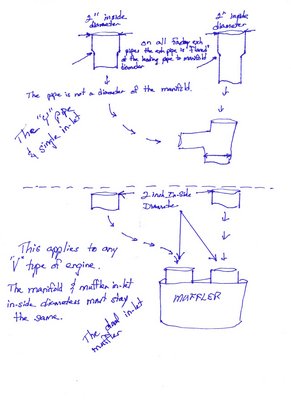 2" inside
diameter
2" inside
diameter
on all factory exh
pipes the exh pipe is "flared"
of the leading pipe to manifold
diameter
The pipe is not a diameter of the manifold.
The "Y" pipe
& single in-let
2 inch In-Side
Diameter
This applies to any
"V" type of engine.
The manifold & muffler in-let
in-side diameters must stay
the same.
The dual in-let
muffler
MUFFLER